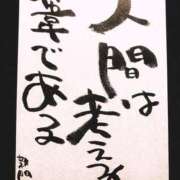 人間は
考える
葦である